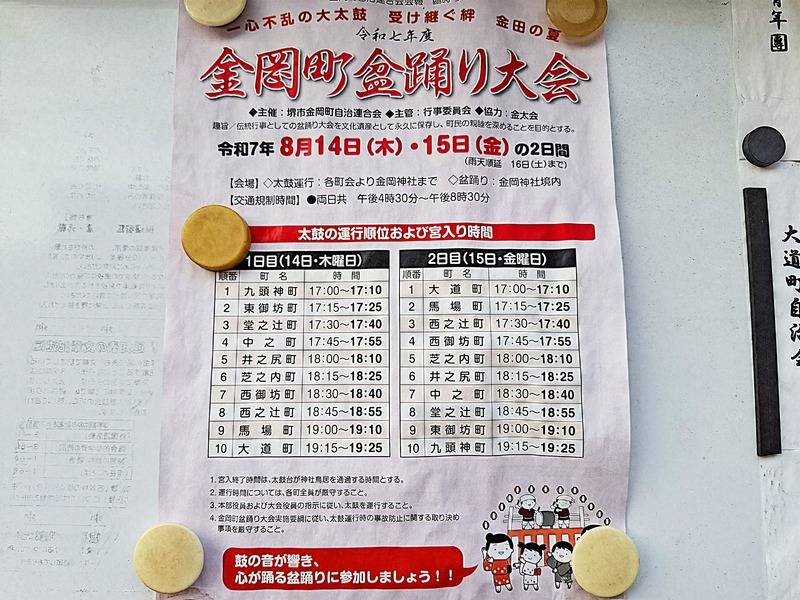 一心不乱の大太鼓 受け継ぐ絆 金田の夏
令和七年度
金岡町盆踊り大会
◆主催：堺市金岡町自治連合会 ◆主管：行事委員会 ◆協力：金太会
趣旨／伝統行事としての盆踊り大会を文化遺産として永久に保存し、町民の親睦を深めることを目的とする。
令和7年 8月14日（木）・15日（金）の2日間
（雨天順延 16日（土）まで）
【会場】◇太鼓運行：各町会より金岡神社まで ◇盆踊り：金岡神社境内
【交通規制時間】●両日共 午後4時30分〜午後8時30分
太鼓の運行順位および宮入り時間
1日目（14日・木曜日）
順番 町名 時間
1 九頭神町 17:00〜17:10
2 東御坊町 17:15〜17:25
3 堂之辻町 17:30〜17:40
4 中之町 17:45〜17:55
5 井之尻町 18:00〜18:10
6 芝之内町 18:15〜18:25
7 西御坊町 18:30〜18:40
8 西之辻町 18:45〜18:55
9 馬場町 19:00〜19:10
10 大道町 19:15〜19:25
2日目（15日・金曜日）
順番 町名 時間
1 大道町 17:00〜17:10
2 馬場町 17:15〜17:25
3 西之辻町 17:30〜17:40
4 西御坊町 17:45〜17:55
5 芝之内町 18:00〜18:10
6 井之尻町 18:15〜18:25
7 中之町 18:30〜18:40
8 堂之辻町 18:45〜18:55
9 東御坊町 19:00〜19:10
10 九頭神町 19:15〜19:25
1. 宮入終了時間は、太鼓台が神社鳥居を通過する時間とする。
2. 運行時間については、各町全員が厳守すること。
3. 本部役員および大会役員の指示に従い、太鼓を運行すること。
4. 金岡町盆踊り大会実施要綱に従い、太鼓運行時の事故防止に関する取り決め
事項を厳守すること。
鼓の音が響き、
心が踊る盆踊りに参加しましょう！！
年團
大道町自治会